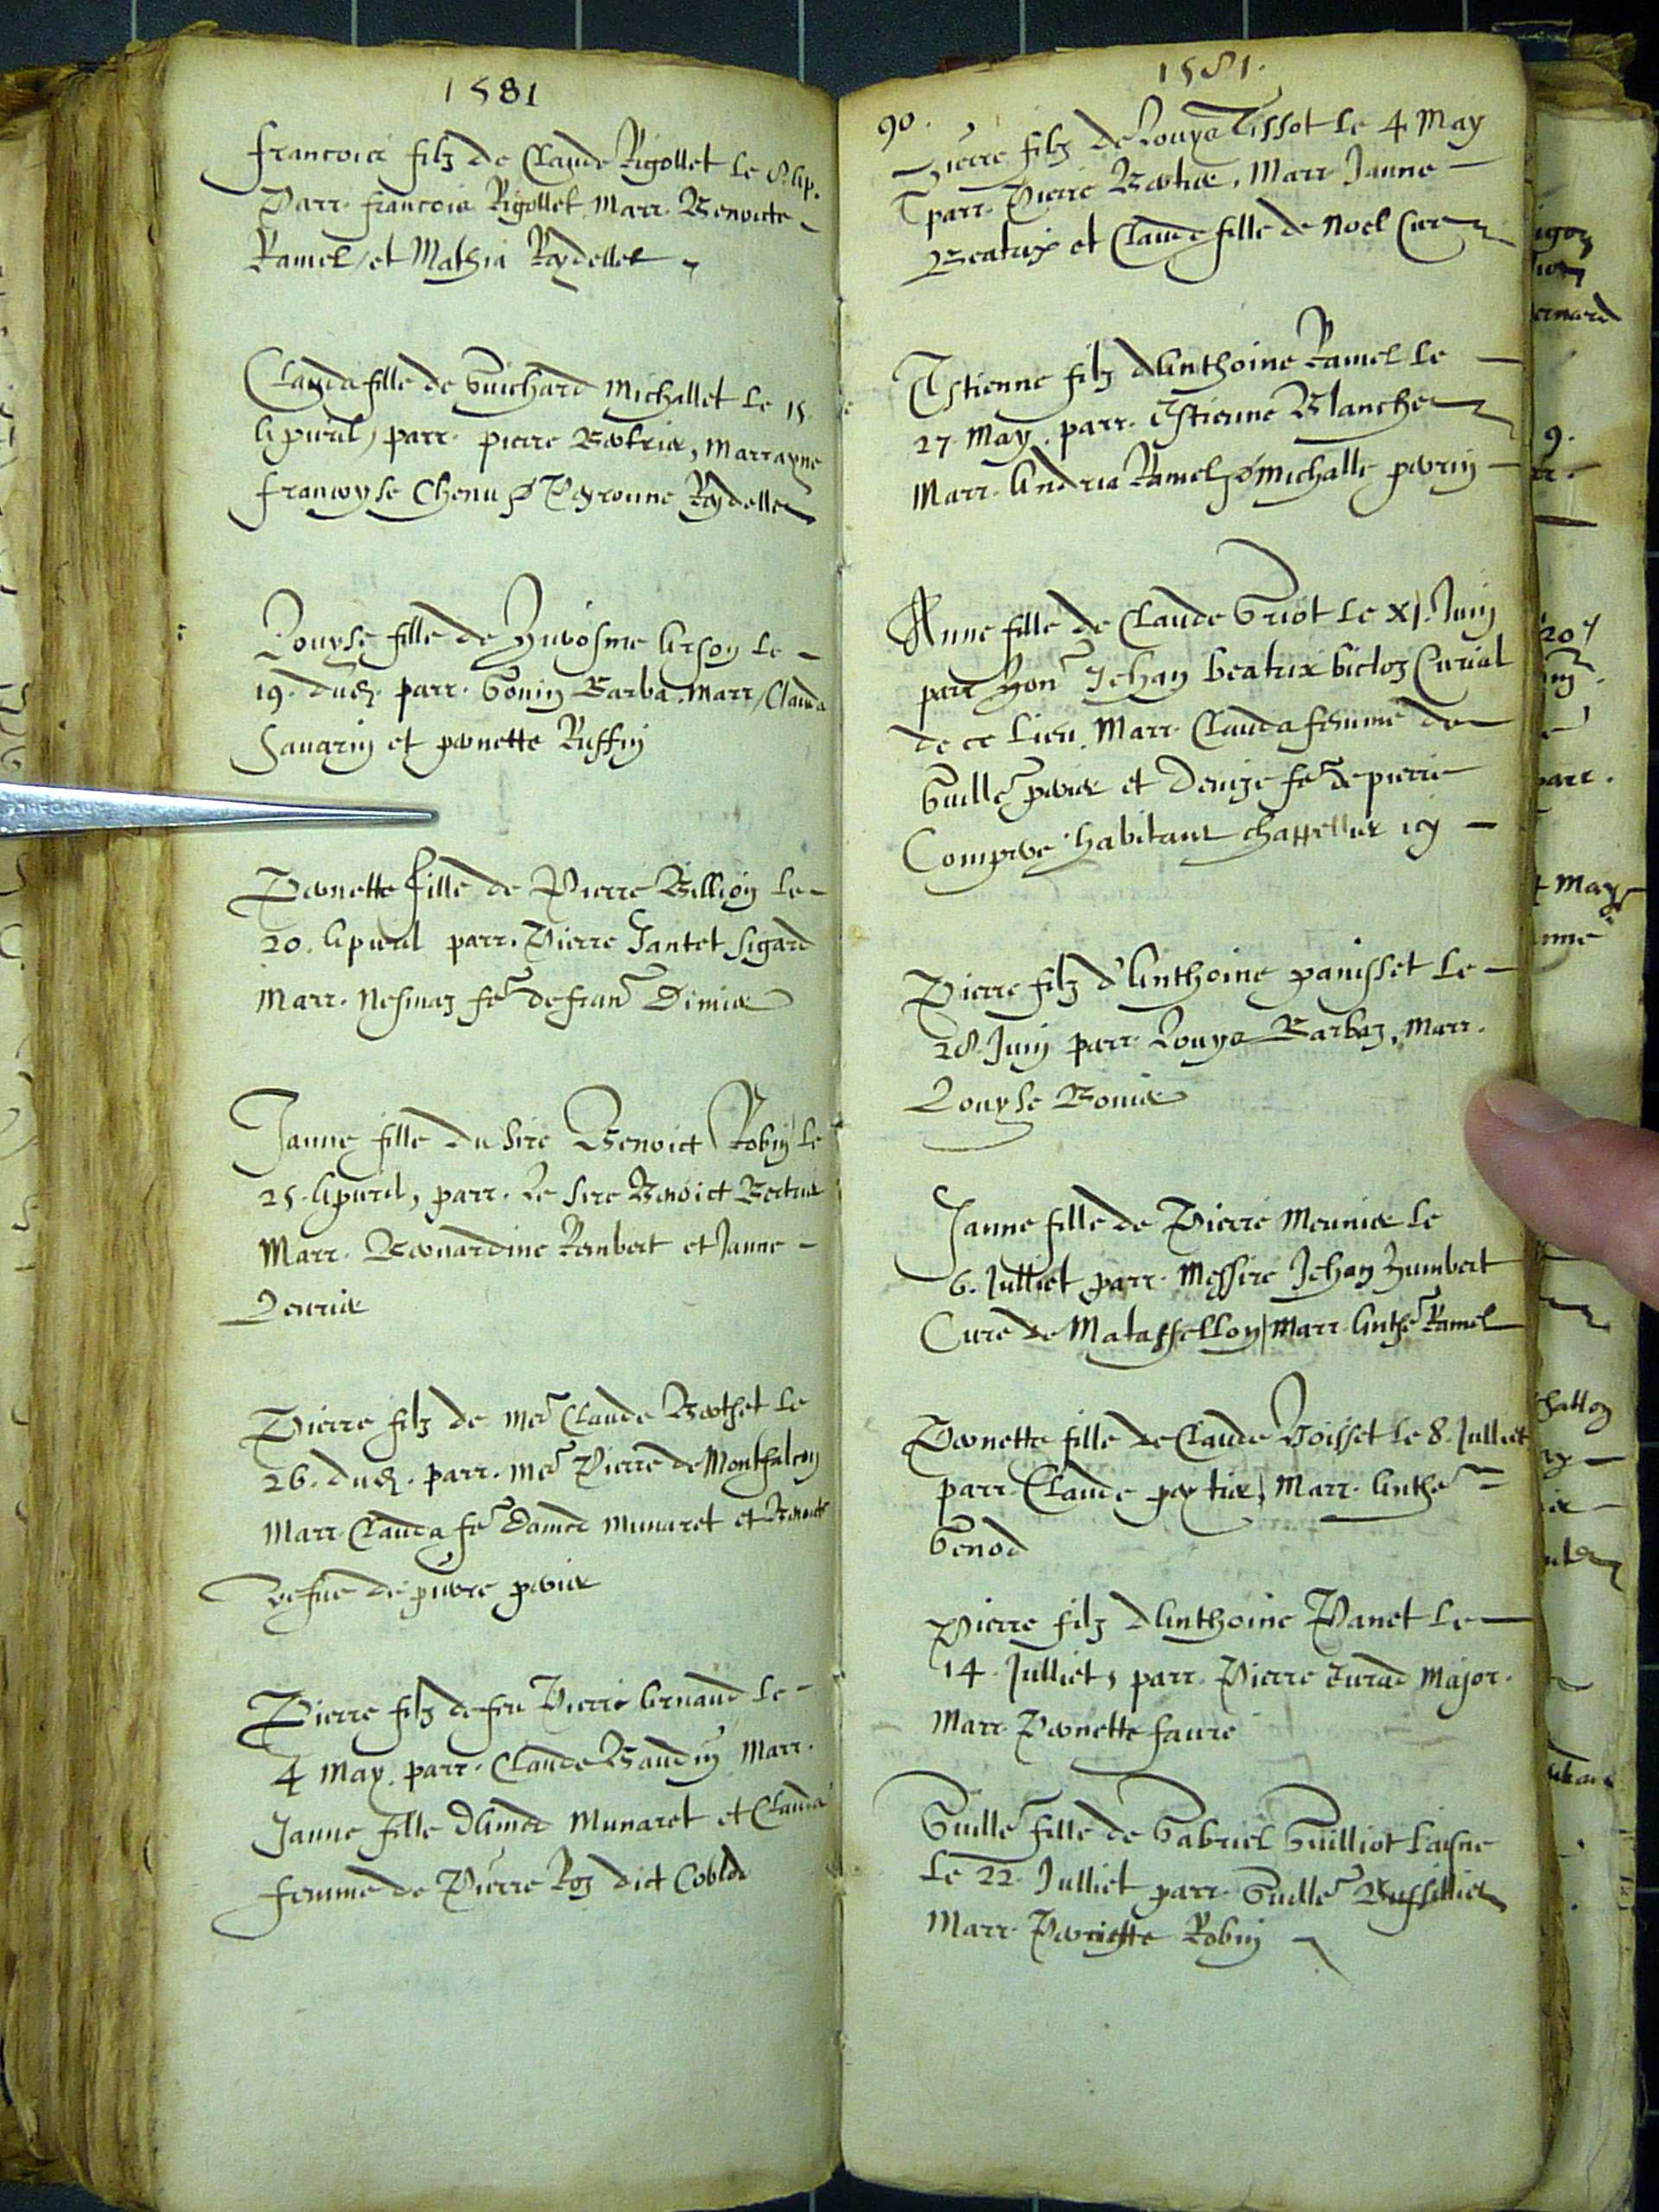 1581
Francois filz de Claude Rigollet le 8. Ap.
Parr. Francois Rigollet Marr. Benoicte
Ramel et Mathia Reydellet
Clauda fille de Guichard Michallet le 15
Apvril, parr. pierre Bertrier, Marrayne
Francoyse Chenu & Peyronne Reydellet
Louyse fille de Arson le
19. dud. parr. Gonin Barba. Marr. Clauda
Savarin et pernette Ruffin
Pernette fille de Pierre Billion le
20. Apvril parr. Pierre Jantet Sigard
Marr. Nesmaz fe de fran
Janne fille du Sire Benoict Robin le
25. Apvril, parr. Le Sire Benoict
Marr. Bernardine Rembert et Janne
Pierre filz de Me Claude Berthet le
26. dud. parr. Me Pierre de Montfalcon
Marr. Clauda fe Damed Munaret et
vefue de pierre perrier
Pierre filz de feu Pierre Arnaud le
4 May. parr. Claude Baudin. Marr.
Janne fille d'Amed Munaret et Clauda
femme de Pierre Roz dict
1581.
90.
Pierre filz de Louys Tissot le 4 May
parr. Pierre Marr. Janne
Beatrix et Claude fille de Noel
Estienne filz d'Anthoine Ramel le
27. May. parr. Estienne Blanchet
Marr. Andrea Ramel & Michalle perrin
Anne fille de Claude Griot le XI. Juin
parr. hon Jehan beatrix Curial
de ce lieu, Marr. Clauda femme de
Guille perrier et Denize fe de pierre
habitant chappellier icy
Pierre filz d'Anthoine panisset le
28. Juin parr. Louys Barbaz, Marr.
Louyse
Janne fille de Pierre Meunier le
6. Julliet parr. Messire Jehan Humbert
Curé de Matassellon, Marr. Anthe Ramel
Pernette fille de Claude Boisset le 8. Julliet
parr. Claude Marr. Anthe
Genod
Pierre filz d'Anthoine Panet le
14. Julliet, parr. Pierre Evrad Major.
Marr. Pernette Faure
Guille fille de Gabriel Guilliot laisne
Le 22 Julliet parr. Guille
Marr. Robin